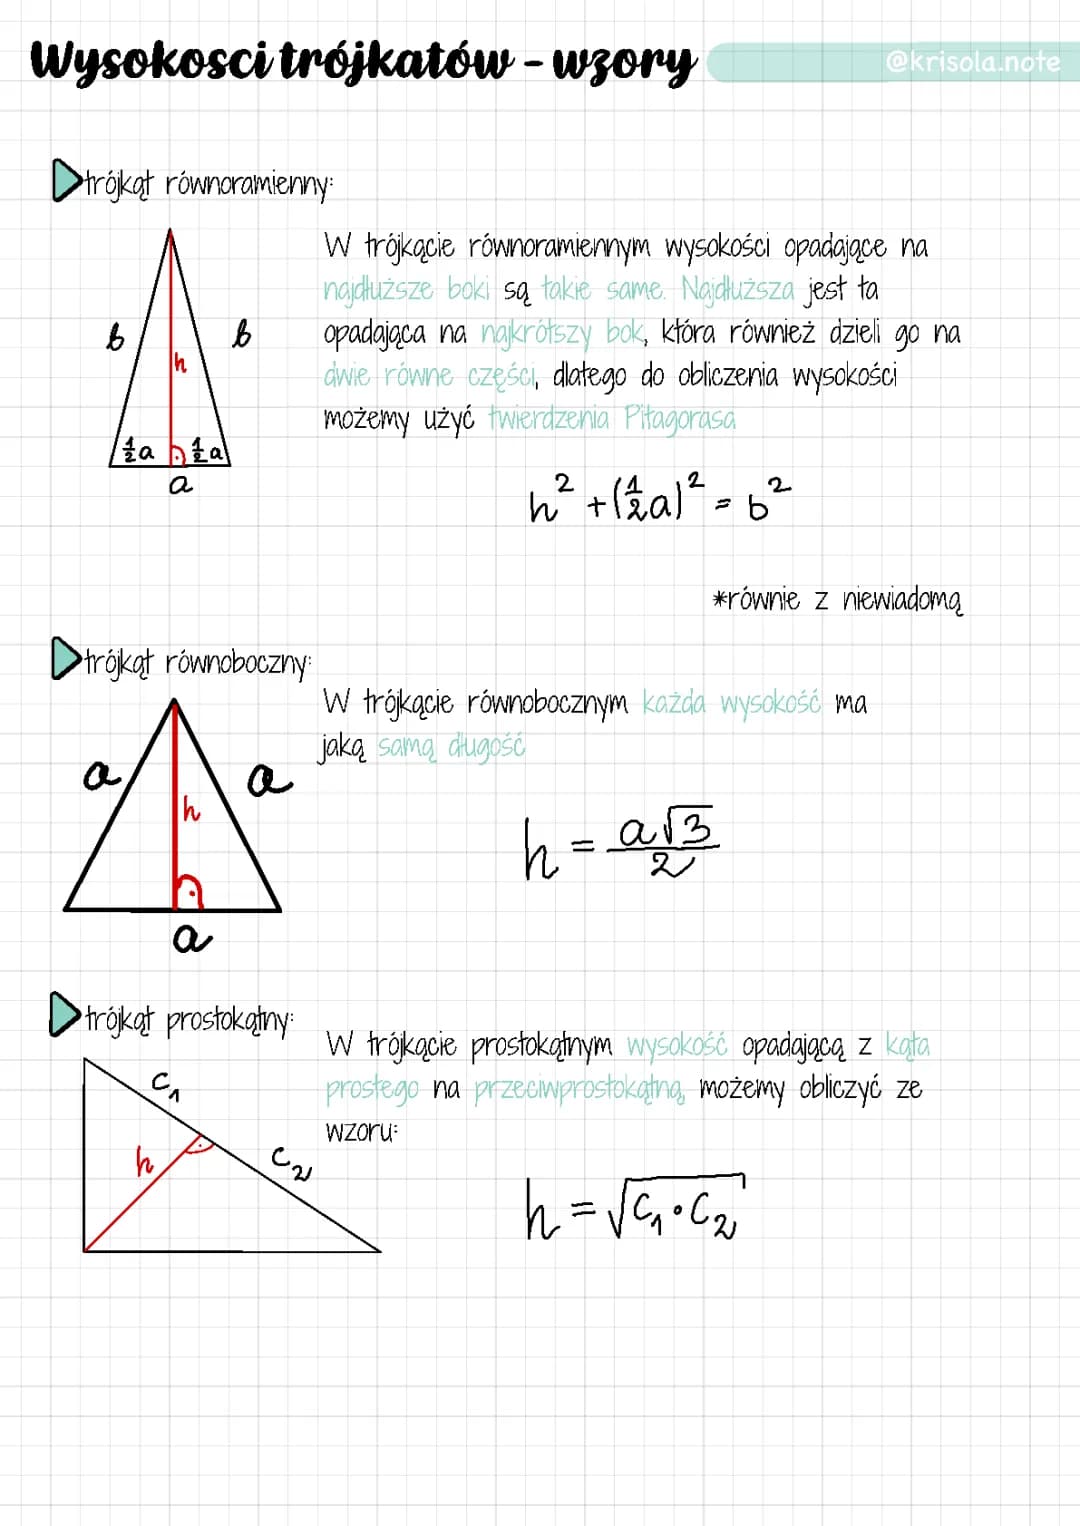 Wysokosci trójkatów - wzory
@krisola.note
trójkąt równoramienny:
W trójkącie równoramiennym wysokości opadające na
najdłuższe boki są takie same. Najdłuższa jest ta
opadająca na najkrótszy bok, która również dzieli go na
dwie równe części, dlatego do obliczenia wysokości
możemy użyć twierdzenia Pitagorasa
b b
h
½a ½a
a
h² + (½a)² = b²
*równie z niewiadomą
trójkąt równoboczny:
W trójkącie równobocznym każda wysokość ma
jaką samą długość
a a
h
a
h = a√3/2
trójkąt prostokątny:
W trójkącie prostokątnym wysokość opadającą z kąta
prostego na przeciwprostokątną, możemy obliczyć ze
wzoru:
c₁
h c₂
h = √c₁·c₂